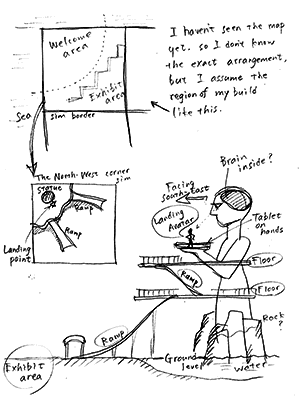 Welcome
area
Exhibit
area
Sea
Sim border
I haven't seen the map
yet. so I don't know
the exact arrangement,
but I assume the
region of my build
like this.
The North-West corner
sim
STATUE
Ramp
Ramp
Landing
point
Brain
inside?
Facing
south-East
Landing
Avatar
Tablet
on
hands
Floor
Ramp
Floor
Rock?
Ramp
Ground
level
water
Exhibit
area